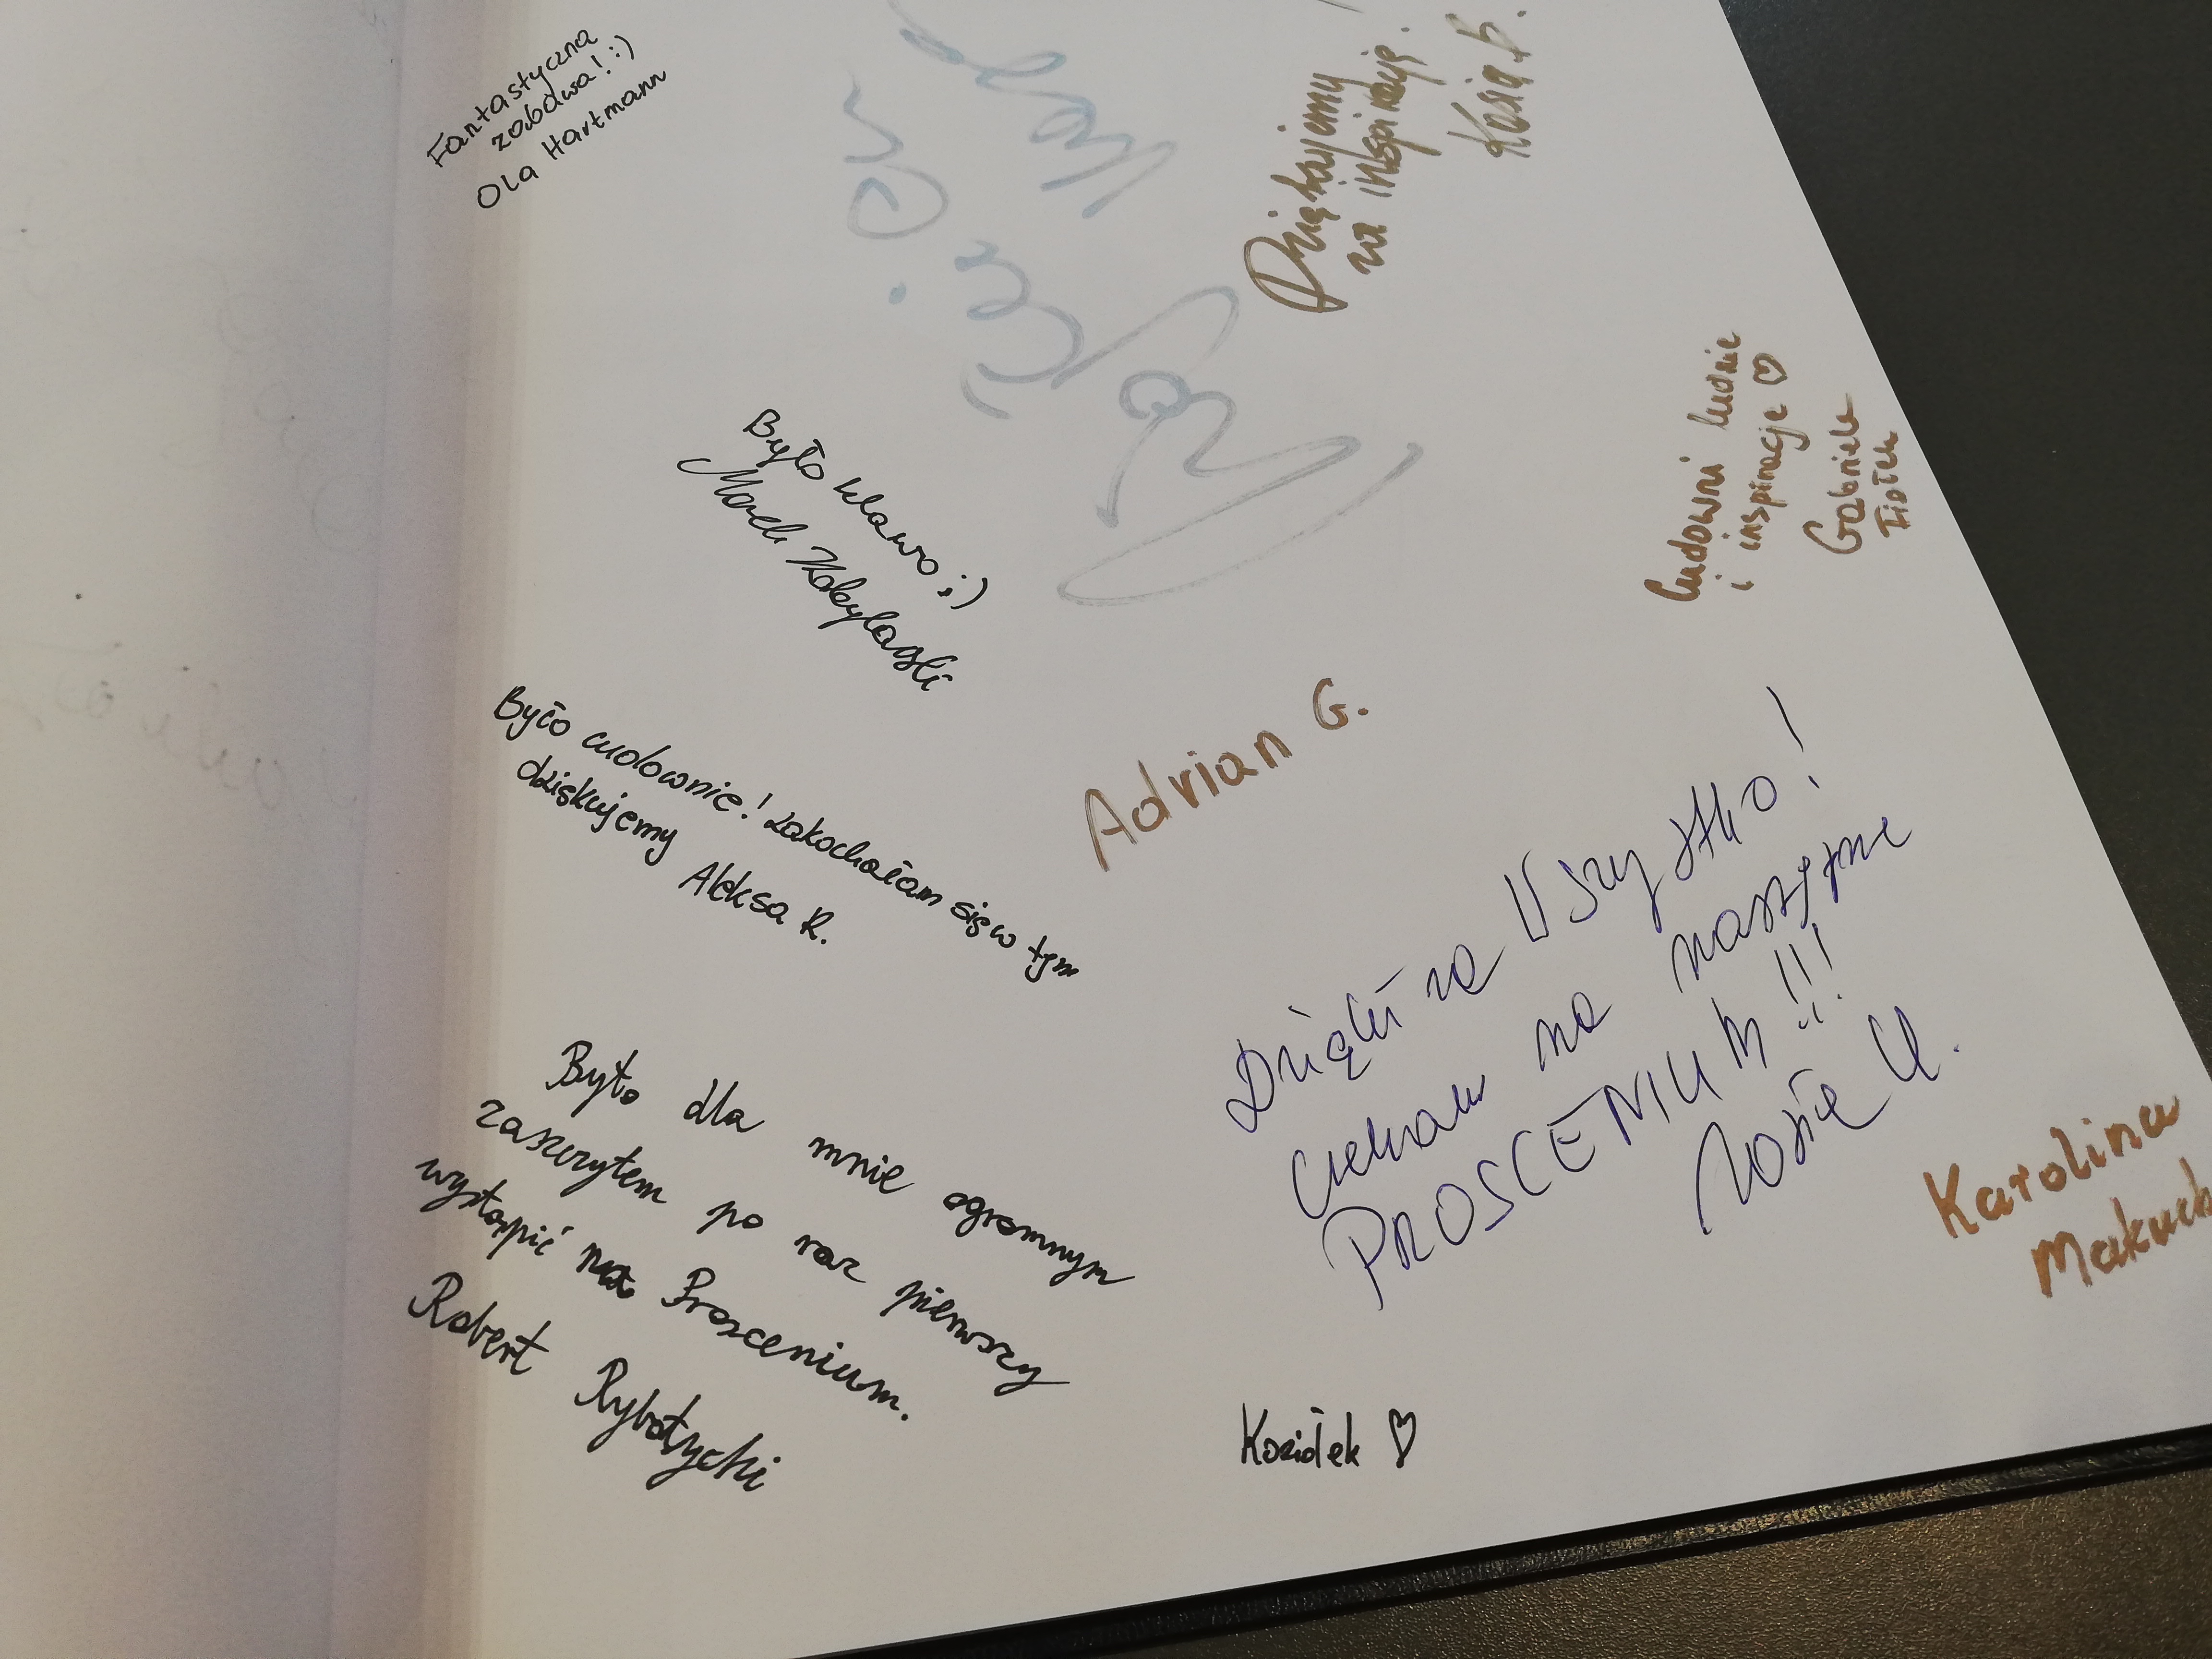 Fantastyczna
zabawa! :)
Ola Hartmann
Dziękujemy
za inspirację.
Kasia.B.
Było klawo ;)
Marek Kobylański
Cudowni ludzie
i inspiracje ♡
Gabriela
Ziołek
Było cudownie! Zakochałam się w tym
dziękujemy Aleksa R.
Adrian G.
Dzięki za Wszystko!
Czekam na następne
PROSCENIUM!!!
Zosia U.
Było dla mnie ogromnym
zaszczytem po raz pierwszy
wystąpić na Proscenium.
Robert Rybotycki
Karolina
Makuch
Koziołek ♡